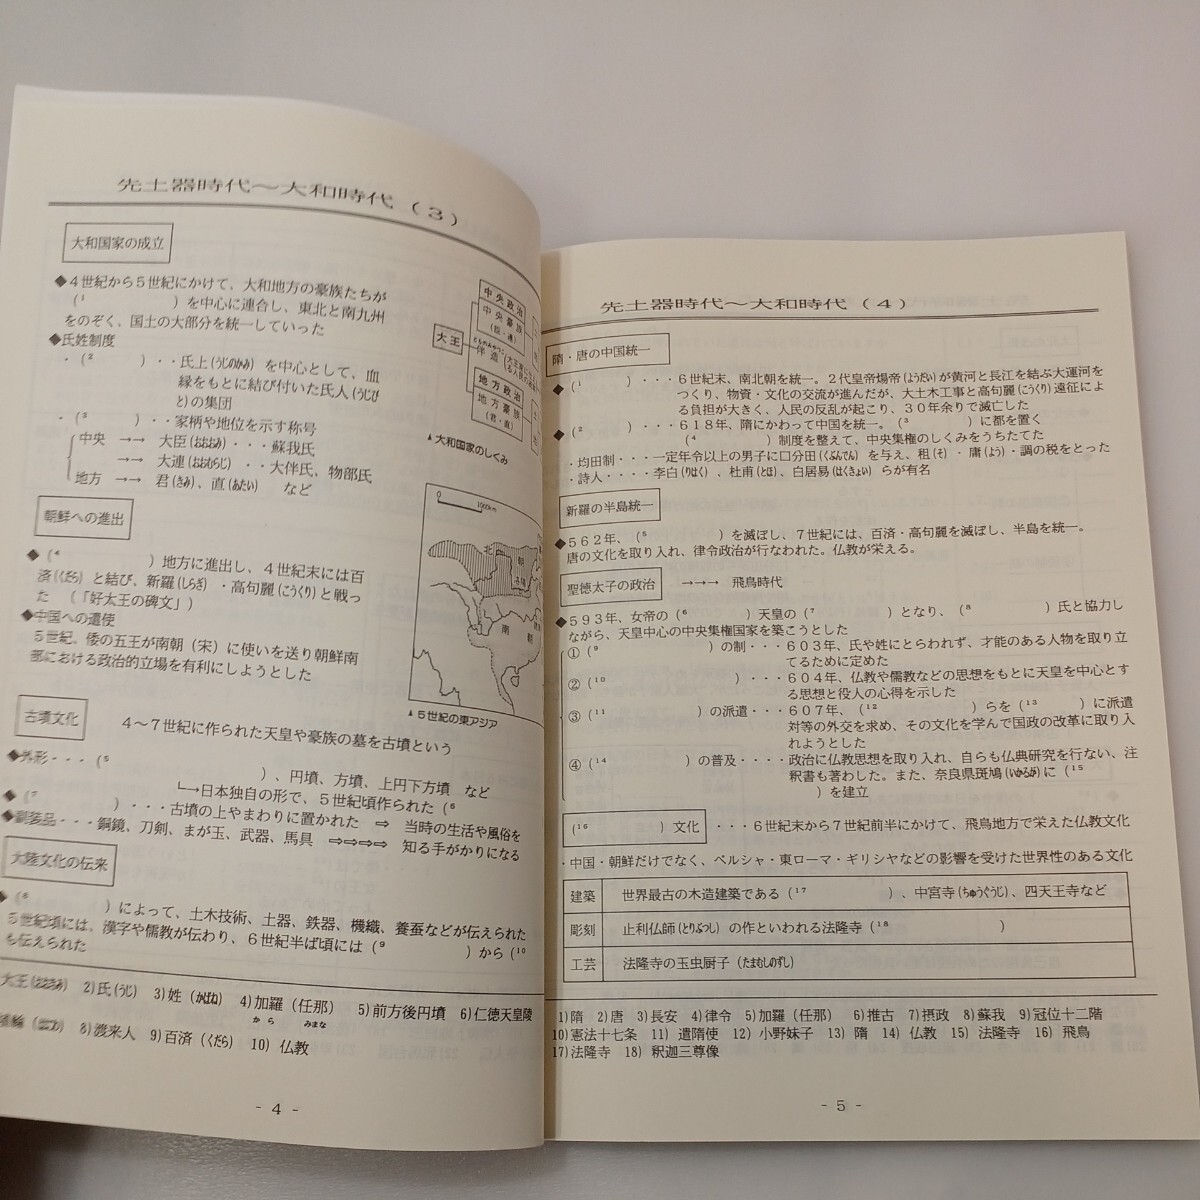 先土器時代〜大和時代（3）
大和国家の成立
◆4世紀から5世紀にかけて、大和地方の豪族たちが
（¹　　　　　）を中心に連合し、東北と南九州
をのぞく、国土の大部分を統一していった
◆氏姓制度
・（²　　　）・・氏上（うじのかみ）を中心として、血
縁をもとに結び付いた氏人（うじびと）
の集団
・（³　　　）・・家柄や地位を示す称号
中央　→→　大臣（おおおみ）・・・蘇我氏
→→　大連（おおむらじ）・・大伴氏、物部氏
地方　→→　君（きみ）、直（あたい）　など
大王
中央政治
中央豪族
（臣・連）
とものみやつこ
伴造
地方政治
地方豪族
（君・直）
▲大和国家のしくみ
朝鮮への進出
◆（⁴　　　　　）地方に進出し、4世紀末には百
済（くだら）と結び、新羅（しらぎ）・高句麗（こうくり）と戦っ
た　（「好太王の碑文」）
◆中国への遣使
5世紀、倭の五王が南朝（宋）に使いを送り朝鮮南
部における政治的立場を有利にしようとした
0　1000km
北
朝
南
朝
▲5世紀の東アジア
古墳文化　4〜7世紀に作られた天皇や豪族の墓を古墳という
◆外形・・・（⁵　　　　　　　）、円墳、方墳、上円下方墳　など
└→日本独自の形で、5世紀頃作られた（⁶
◆（⁷　　　　）・・・古墳の上やまわりに置かれた　⇨　当時の生活や風俗を
◆副葬品・・・銅鏡、刀剣、まが玉、武器、馬具　⇨⇨⇨⇨　知る手がかりになる
大陸文化の伝来
◆（⁸　　　　）によって、土木技術、土器、鉄器、機織、養蚕などが伝えられた
5世紀頃には、漢字や儒教が伝わり、6世紀半ば頃には（⁹　　　　）から（¹⁰
も伝えられた
大王（おおきみ）　2)氏（うじ）　3)姓（かばね）　4)加羅（任那）　5)前方後円墳　6)仁徳天皇陵
から　みまな
埴輪（はにわ）　8)渡来人　9)百済（くだら）　10)　仏教
- 4 -
先土器時代〜大和時代（4）
隋・唐の中国統一
◆（¹　　　）・・・6世紀末、南北朝を統一。2代皇帝煬帝（ようだい）が黄河と長江を結ぶ大運河を
つくり、物資・文化の交流が進んだが、大土木工事と高句麗（こうくり）遠征によ
る負担が大きく、人民の反乱が起こり、30年余りで滅亡した
◆（²　　　）・・・618年、隋にかわって中国を統一。（³　　　　　）に都を置く
（⁴　　　　　）制度を整えて、中央集権のしくみをうちたてた
・均田制・・・一定年令以上の男子に口分田（くぶんでん）を与え、租（そ）・庸（よう）・調の税をとった
・詩人・・・・李白（りはく）、杜甫（とほ）、白居易（はくきょい）らが有名
新羅の半島統一
◆562年、（⁵　　　　　）を滅ぼし、7世紀には、百済・高句麗を滅ぼし、半島を統一。
唐の文化を取り入れ、律令政治が行なわれた。仏教が栄える。
聖徳太子の政治　→→→　飛鳥時代
◆593年、女帝の（⁶　　　　）天皇の（⁷　　　　　）となり、（⁸　　　　　）氏と協力し
ながら、天皇中心の中央集権国家を築こうとした
①（⁹　　　　　　　）の制・・・603年、氏や姓にとらわれず、才能のある人物を取り立
てるために定めた
②（¹⁰　　　　　　　　）・・・604年、仏教や儒教などの思想をもとに天皇を中心とす
る思想と役人の心得を示した
③（¹¹　　　　　　）の派遣・・・607年、（¹²　　　　　　）らを（¹³　　　）に派遣
対等の外交を求め、その文化を学んで国政の改革に取り入
れようとした
④（¹⁴　　　　　）の普及・・・・政治に仏教思想を取り入れ、自らも仏典研究を行ない、注
釈書も著わした。また、奈良県斑鳩（いかるが）に（¹⁵
）を建立
（¹⁶　　　　）文化　・・・6世紀末から7世紀前半にかけて、飛鳥地方で栄えた仏教文化
・中国・朝鮮だけでなく、ペルシャ・東ローマ・ギリシヤなどの影響を受けた世界性のある文化
建築　世界最古の木造建築である（¹⁷　　　　　）、中宮寺（ちゅうぐうじ）、四天王寺など
彫刻　止利仏師（とりぶっし）の作といわれる法隆寺（¹⁸　　　　　　　）
工芸　法隆寺の玉虫厨子（たまむしのずし）
1)隋　2)唐　3)長安　4)律令　5)加羅（任那）　6)推古　7)摂政　8)蘇我　9)冠位十二階
10)憲法十七条　11)　遣隋使　12)　小野妹子　13)　隋　14)　仏教　15)　法隆寺　16)　飛鳥
17)法隆寺　18)　釈迦三尊像
- 5 -